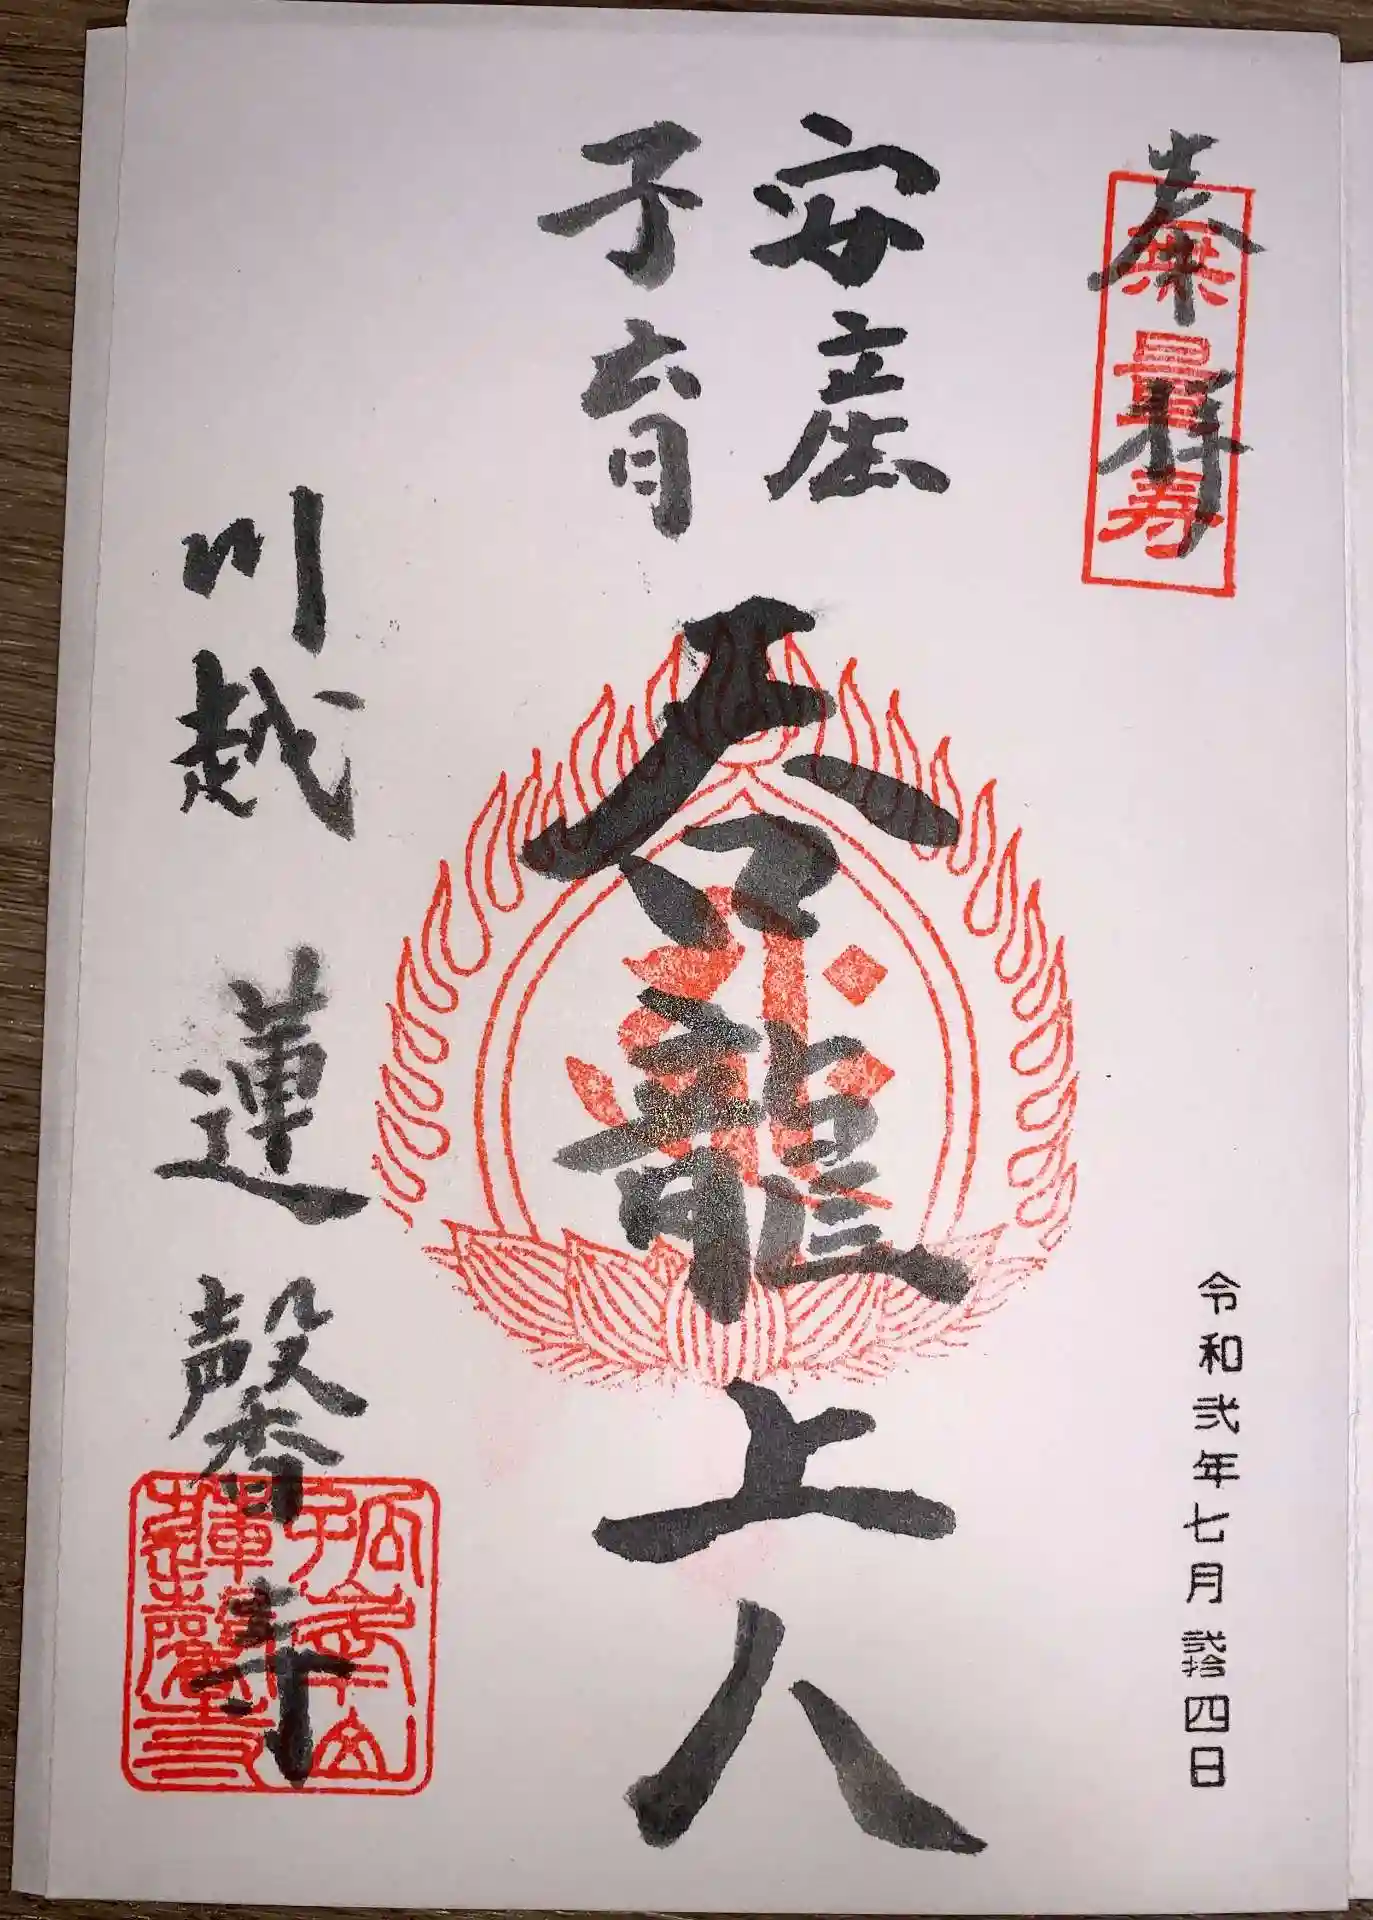 奉拝
無量寿
令和弐年七月弐拾四日
安産
子育
呑龍上人
川越 蓮馨寺